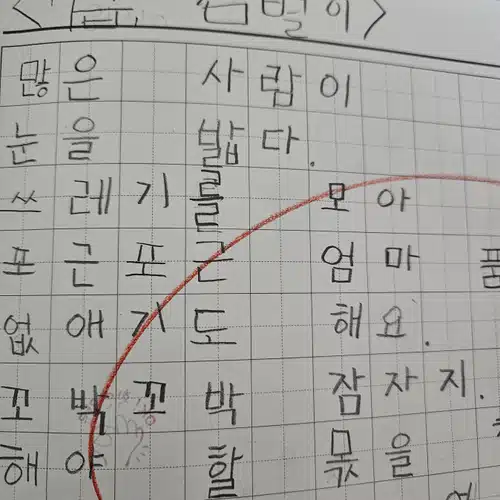 많은 사람이
눈을 밟다.
쓰레기를 모아
포근포근 엄마 품
없애기도 해요.
꼬박꼬박 잠자지.
해야 할 몫을